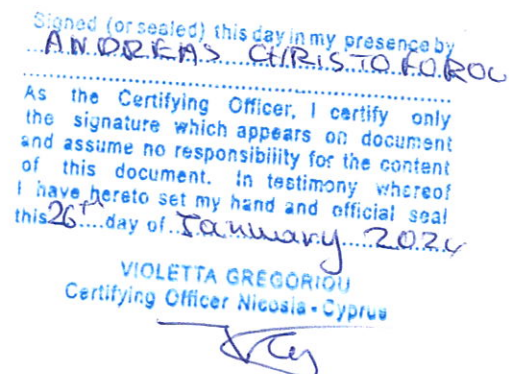 Signed (or sealed) this day in my presence by
ANDREAS CHRISTOFOROU
As the Certifying Officer, I certify only
the signature which appears on document
and assume no responsibility for the content
of this document. In testimony whereof
I have hereto set my hand and official seal
this 26th day of January 2024
VIOLETTA GREGORIOU
Certifying Officer Nicosia - Cyprus